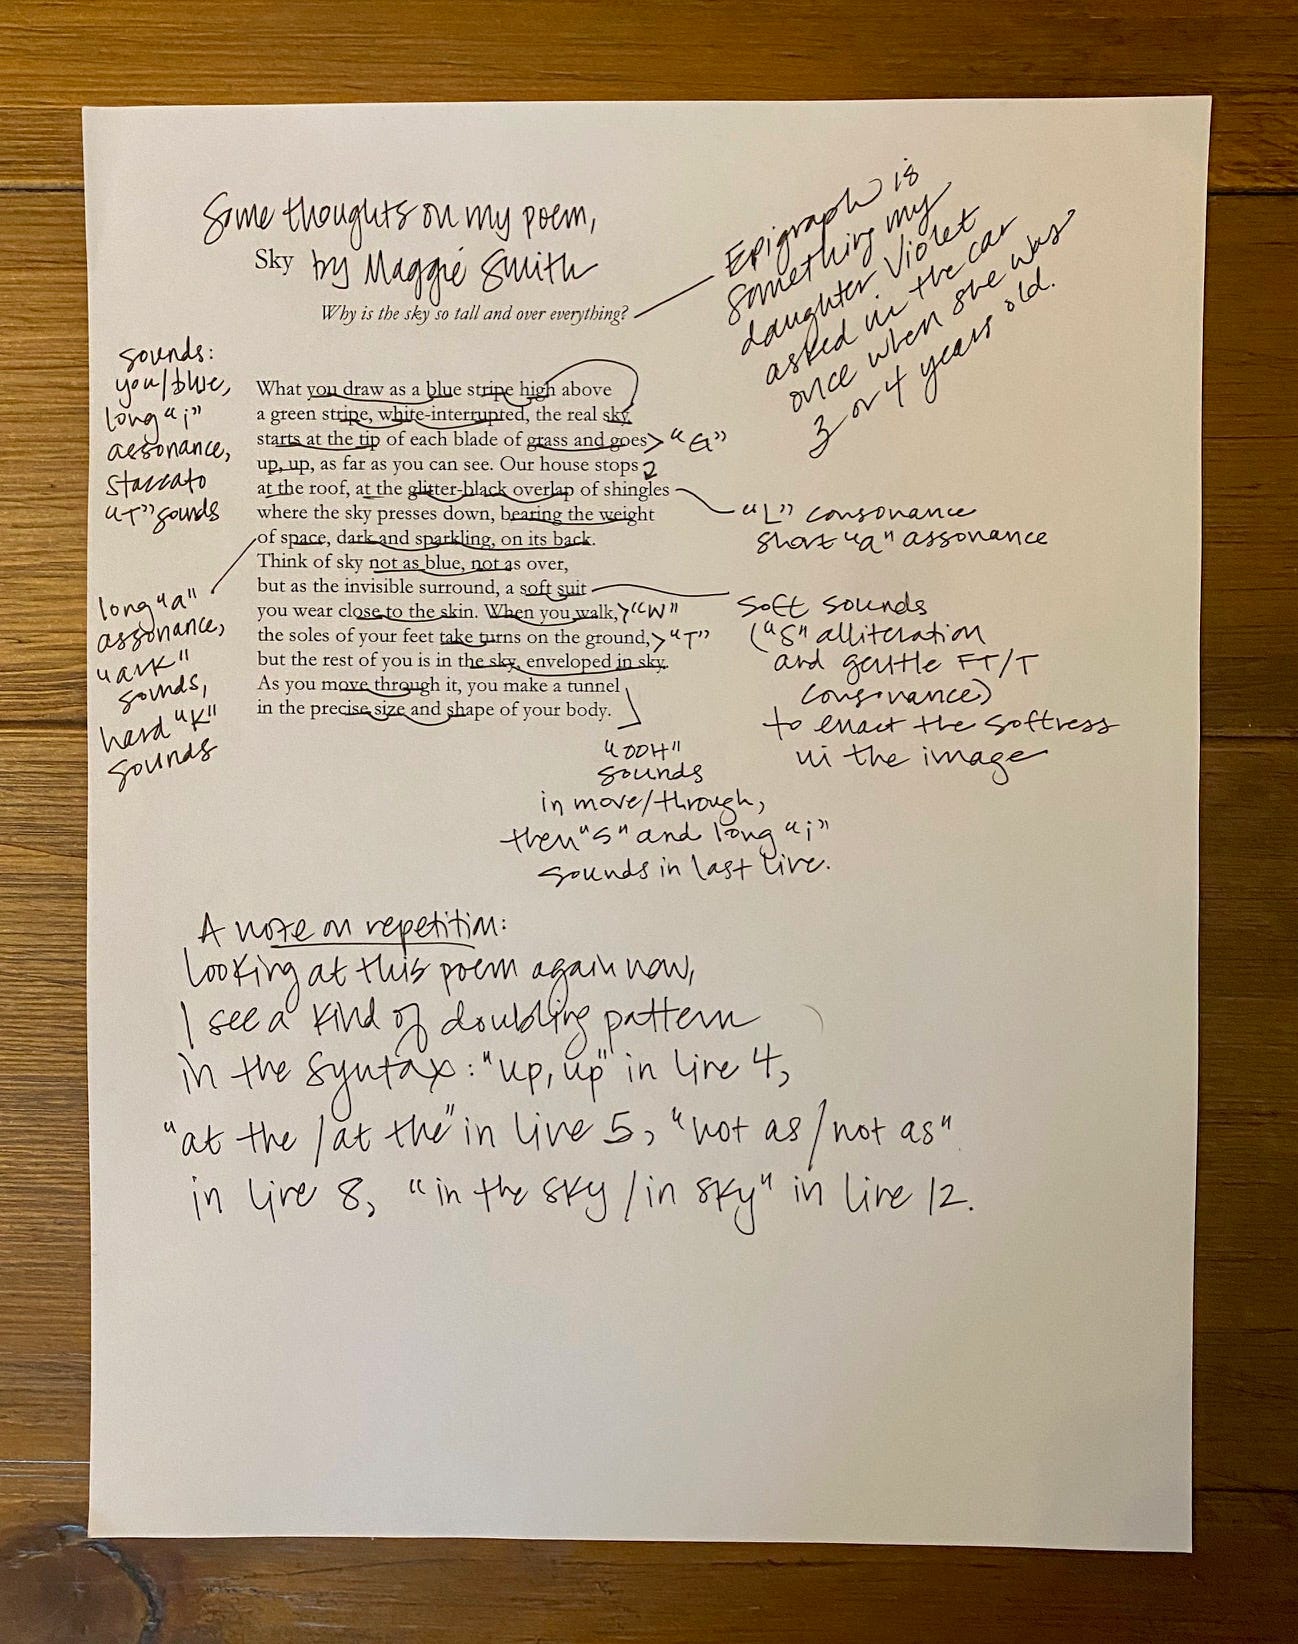 Some thoughts on my poem,
Sky by Maggie Smith
Why is the sky so tall and over everything?
Epigraph is
something my
daughter Violet
asked in the car
once when she was
3 or 4 years old.
sounds:
you/blue,
long "i"
assonance,
staccato
"T" sounds
What you draw as a blue stripe high above
a green stripe, white-interrupted, the real sky
starts at the tip of each blade of grass and goes
up, up, as far as you can see. Our house stops
at the roof, at the glitter-black overlap of shingles
where the sky presses down, bearing the weight
of space, dark and sparkling, on its back.
Think of sky not as blue, not as over,
but as the invisible surround, a soft suit
you wear close to the skin. When you walk,
the soles of your feet take turns on the ground,
but the rest of you is in the sky, enveloped in sky.
As you move through it, you make a tunnel
in the precise size and shape of your body.
"G"
"L" consonance
short "a" assonance
long "a"
assonance,
"ark"
sounds,
hard "K"
sounds
"W"
"T"
soft sounds
("S" alliteration
and gentle FT/T
consonance)
to enact the softness
in the image
"OOH"
sounds
in move/through,
then "S" and long "i"
sounds in last line.
A note on repetition:
Looking at this poem again now,
I see a kind of doubling pattern
in the syntax: "up, up" in line 4,
"at the / at the" in line 5, "not as / not as"
in line 8, "in the sky / in sky" in line 12.